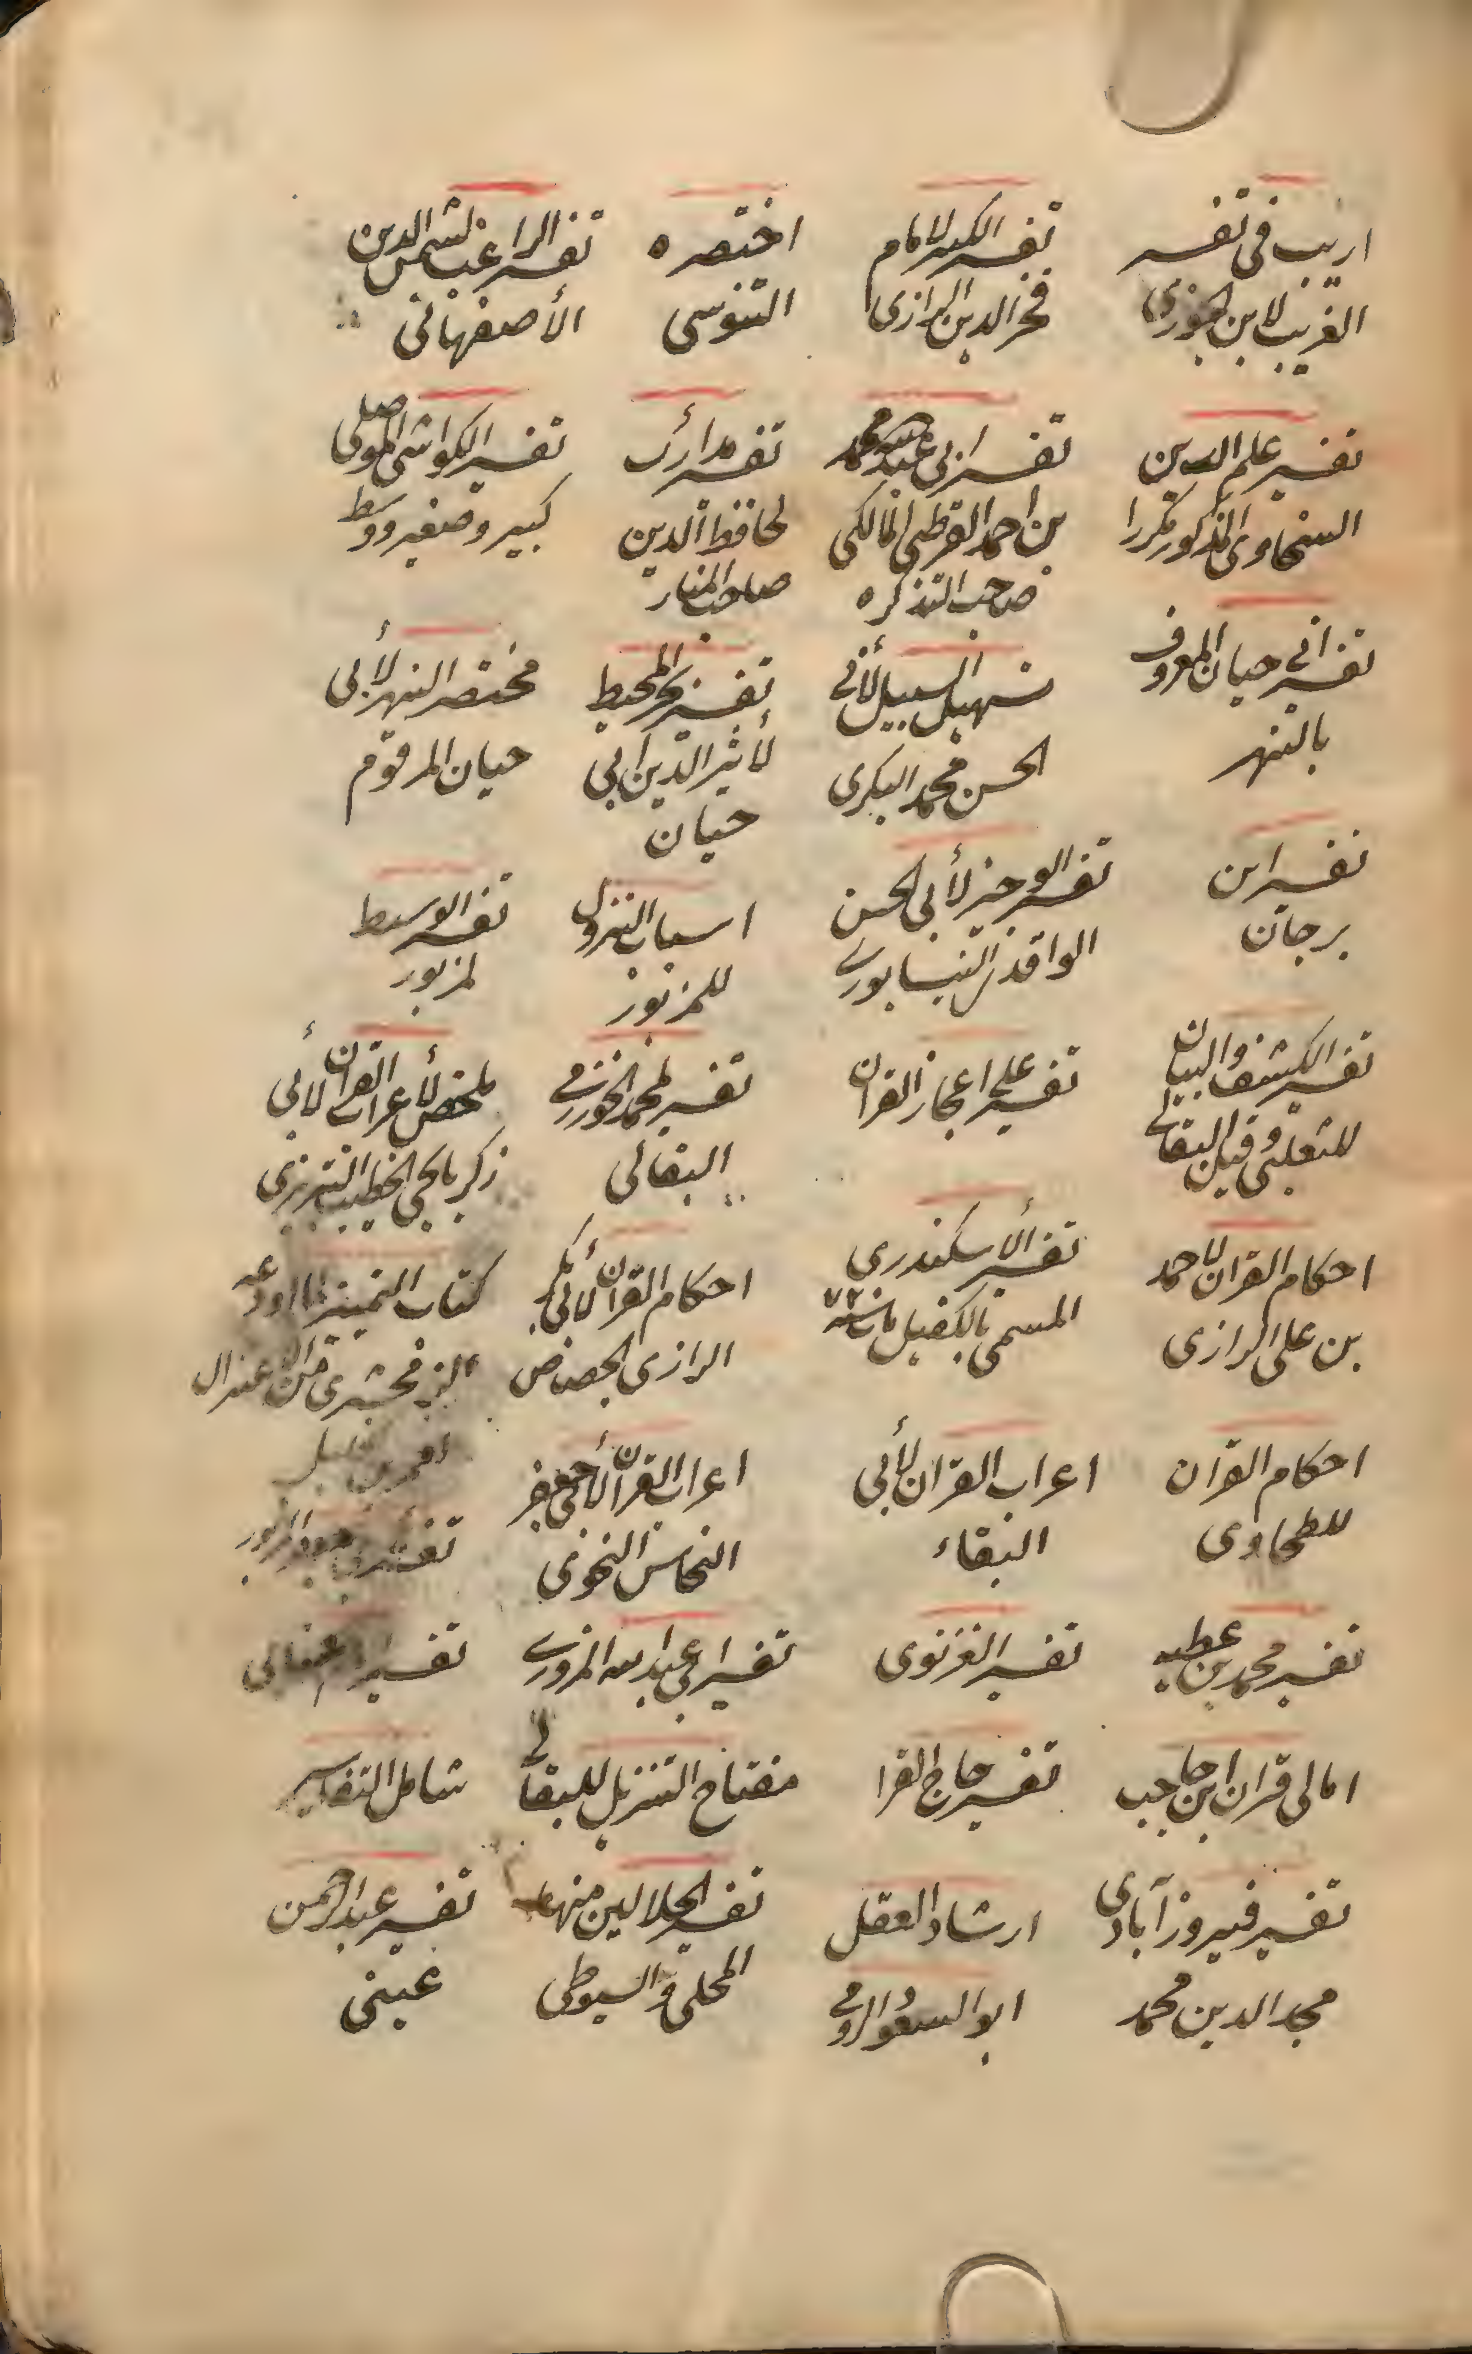 اريب فى تفسير
الغريب لابن الجوزى
تفسير الكبير لامام
فخر الدين الرازى
اختصره
التنوسى
تفسير الراغب لشمس الدين
الأصفهانى
تفسير علم الدين
السخاوى المذكور مكررا
تفسير ابى عبد الله محمد
بن احمد القرطبى المالكى
صاحب التذكره
تفسير مدارك
لحافظ الدين
صاحب المنار
تفسير الكواشى الموصلى
كبير وصغير ووسط
تفسير ابى حيان المعروف
بالنهر
تسهيل السبيل لأبى
الحسن محمد البكرى
تفسير بحر المحيط
لأثير الدين ابى
حيان
مختصر النهر لأبى
حيان المرقوم
تفسير ابن
برجان
تفسير الوجيز لأبى الحسن
الواقدى النيسابورى
اسباب النزول
للمزبور
تفسير الوسيط
لمزبور
تفسير الكشف والبيان
للثعلبى وقيل البقالى
تفسير على اعجاز القران
تفسير لمحمد الخوارزمى
البقالى
ملخص لأعراب القران لأبى
زكريا يحيى الخطيب التبريزى
احكام القران لاحمد
بن على الرازى
تفسير الأسكندرى
المسمى بالكفيل مات سنه
احكام القران لأبى بكر
الرازى الجصاص
كتاب التمييز لما اودعه
الزمخشرى من الاعتزال
احكام القران
للطحاوى
اعراب القران لأبى
البقاء
اعراب القران لأبى جعفر
النحاس النحوى
تفسير
تفسير محمد بن عطيه
تفسير الغزنوى
تفسير ابى عبد الله المروزى
تفسير
امالى قران ابن حاجب
تفسير حاج القرا
مفتاح التنزيل للبقالى
شامل التفاسير
تفسير فيروز آبادى
مجد الدين محمد
ارشاد العقل
ابو السعود الرومى
تفسير الجلالين منهما
المحلى والسيوطى
تفسير عبد الرحمن
عينى